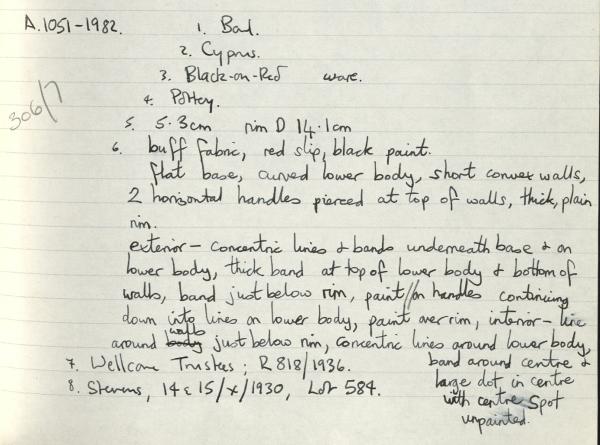 A.1051-1982. 1. Bowl.
2. Cyprus.
306/7
3. Black-on-Red ware.
4. Pottery.
5. 5.3cm rim D 14.1cm
6. buff fabric, red slip, black paint.
flat base, curved lower body, short convex walls,
2 horizontal handles pierced at top of walls, thick, plain
rim.
exterior - concentric lines & bands underneath base & on
lower body, thick band at top of lower body & bottom of
walls, band just below rim, paint // on handles continuing
down into lines on lower body, paint over rim, interior - line
around body walls just below rim, concentric lines around lower body,
band around centre &
large dot in centre
with centre spot
unpainted.
7. Wellcome Trustees; R818/1936.
8. Stevens, 14 & 15/X/1930, Lot 584.